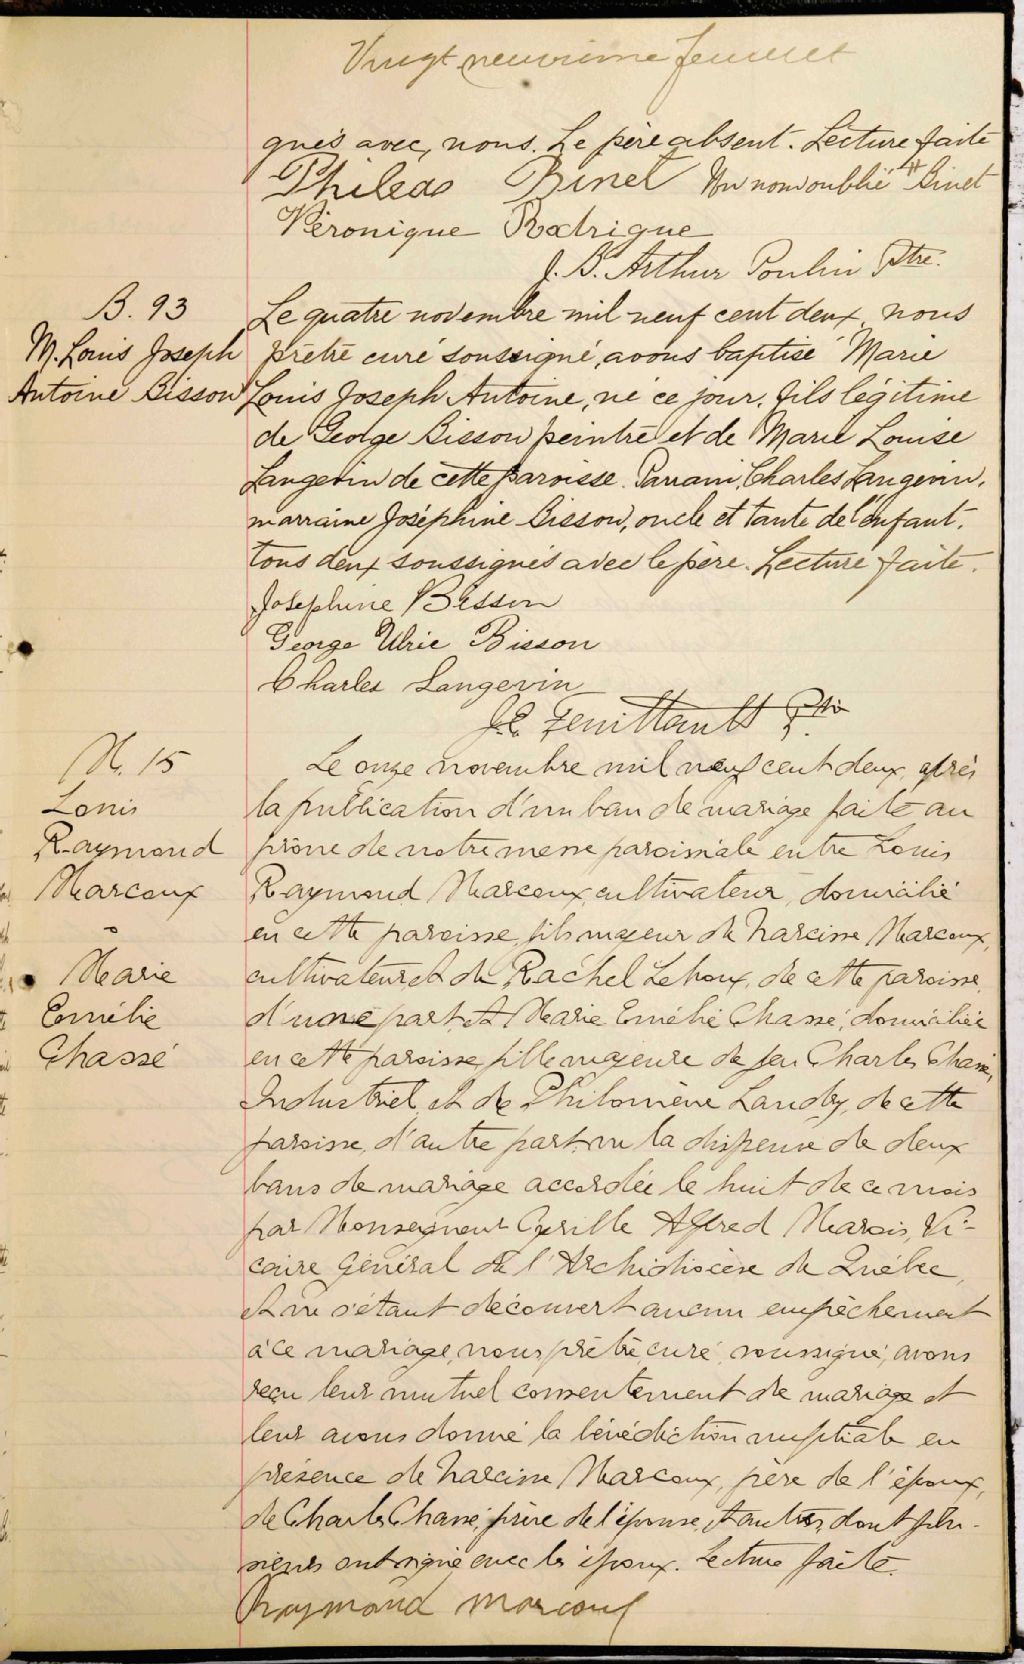 Vingt neuvième feuillet
gnés avec nous. Le père absent. Lecture faite
Phileas Binet Un nom oublié # Binet
Véronique Rodrigue
J. B. Arthur Poulin Ptre.
B. 93
M. Louis Joseph
Antoine Bisson
Le quatre novembre mil neuf cent deux, nous
prêtre curé soussigné, avons baptisé Marie
Louis Joseph Antoine, né ce jour, fils légitime
de George Bisson peintre et de Marie Louise
Langevin de cette paroisse. Parrain, Charles Langevin,
marraine Joséphine Bisson, oncle et tante de l'enfant,
tous deux soussignés avec le père. Lecture faite.
Josephine Bisson
George Ulric Bisson
Charles Langevin
J. E. Feuiltault Ptre
M. 15
Louis
Raymond
Marcoux
&
Marie
Emélie
Chassé
Le onze novembre mil neuf cent deux, après
la publication d'un ban de mariage faite au
prône de notre messe paroissiale entre Louis
Raymond Marcoux, cultivateur, domicilié
en cette paroisse, fils majeur de Narcisse Marcoux,
cultivateur et de Rachel Lehoux, de cette paroisse,
d'une part, et Marie Emélie Chassé, domiciliée
en cette paroisse, fille majeure de feu Charles Chassé,
Industriel, et de Philomène Landry, de cette
paroisse, d'autre part, vu la dispense de deux
bans de mariage accordée le huit de ce mois
par Monseigneur Cyrille Alfred Marois, Vi-
caire Général de l'Archidiocèse de Québec,
et ne s'étant découvert aucun empêchement
à ce mariage, nous prêtre, curé, soussigné, avons
reçu leur mutuel consentement de mariage et
leur avons donné la bénédiction nuptiale en
présence de Narcisse Marcoux, père de l'époux,
de Charles Chassé, frère de l'épouse, et autres, dont plu-
sieurs ont signé avec les époux. Lecture faite.
Raymond Marcoux